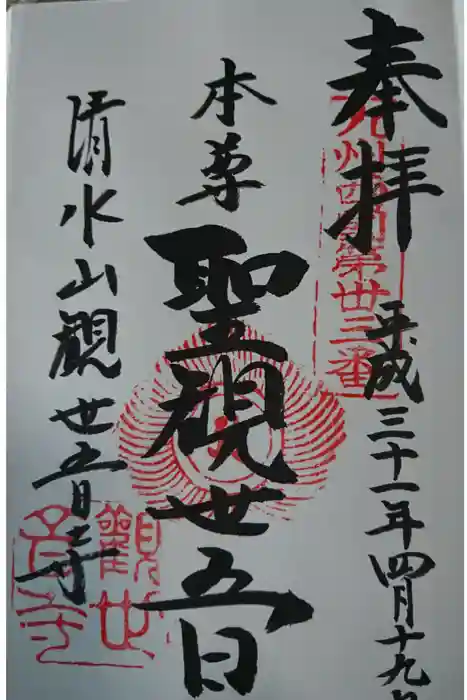 奉拝
九州西国第卅三番
平成三十一年四月十九日
本尊
聖観世音
清水山観世音寺
観世音寺